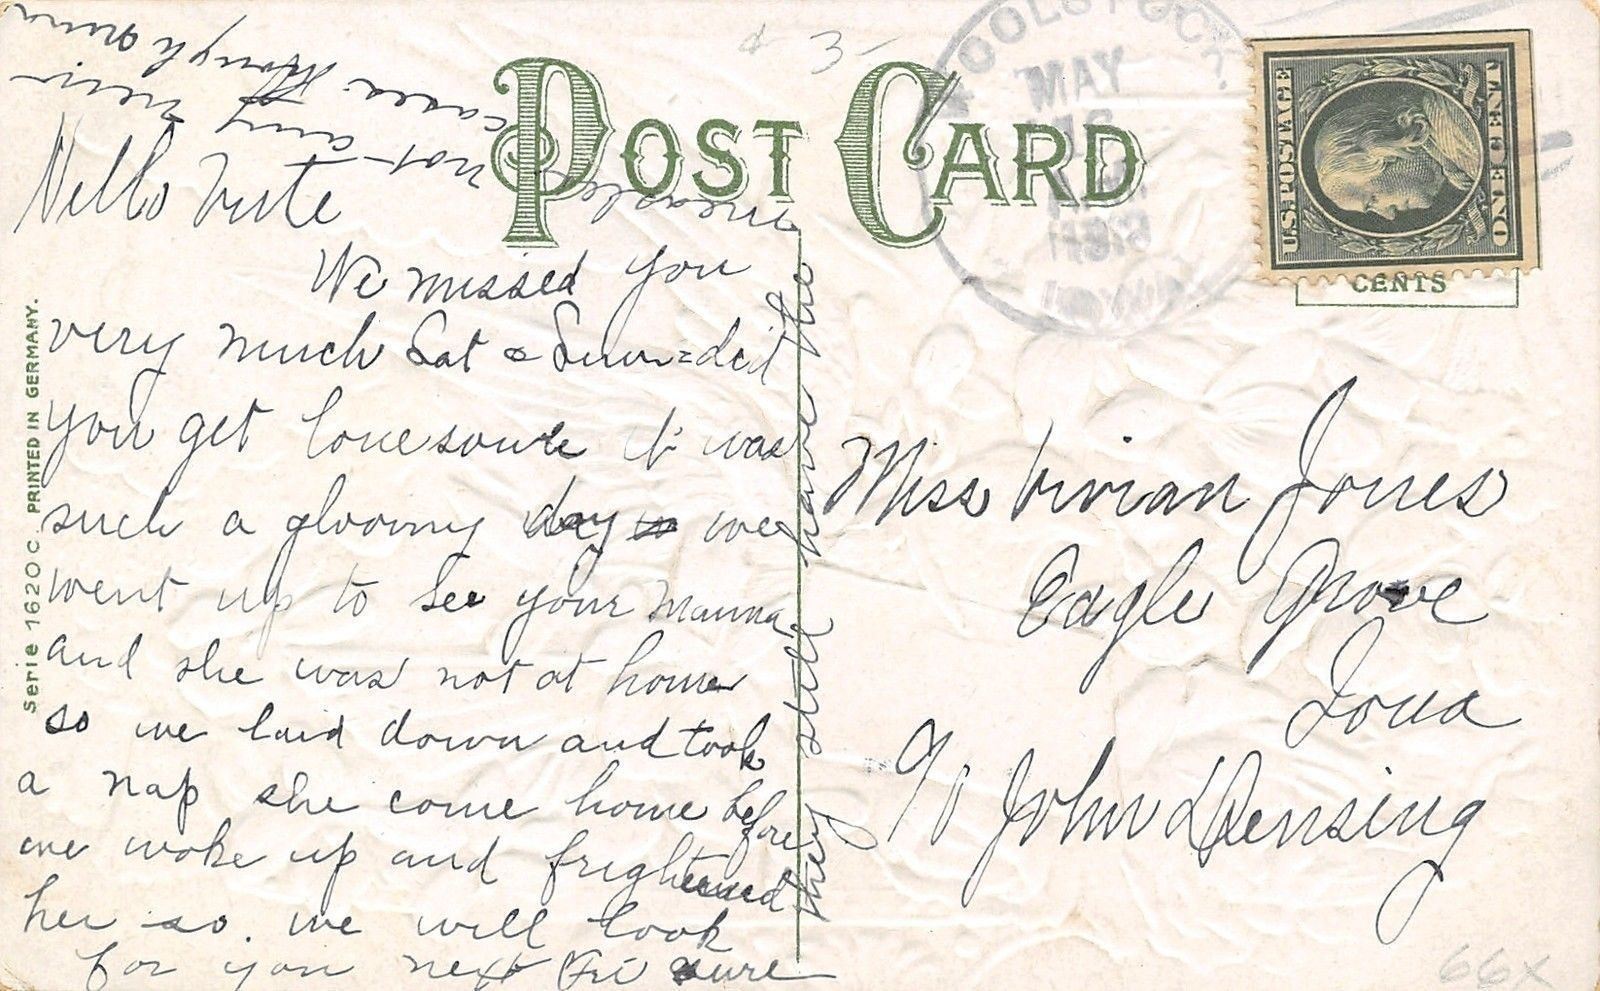 POST CARD
WOOLSTOCK
MAY
U.S. POSTAGE
ONE CENT
CENTS
Serie 1620 C PRINTED IN GERMANY.
Hello
We missed you
very much Sat & Sun = did
you get lonesome it was
such a gloomy day we
went up to see your Mamma
and she was not at home
so we laid down and took
a nap she come home before
we woke up and frightened
her so. we will look
for you next Fri sure
they still have the
measles not any new
cases though
Miss Vivian Jones
Eagle Grove
Iowa
c/o John Densing
66x